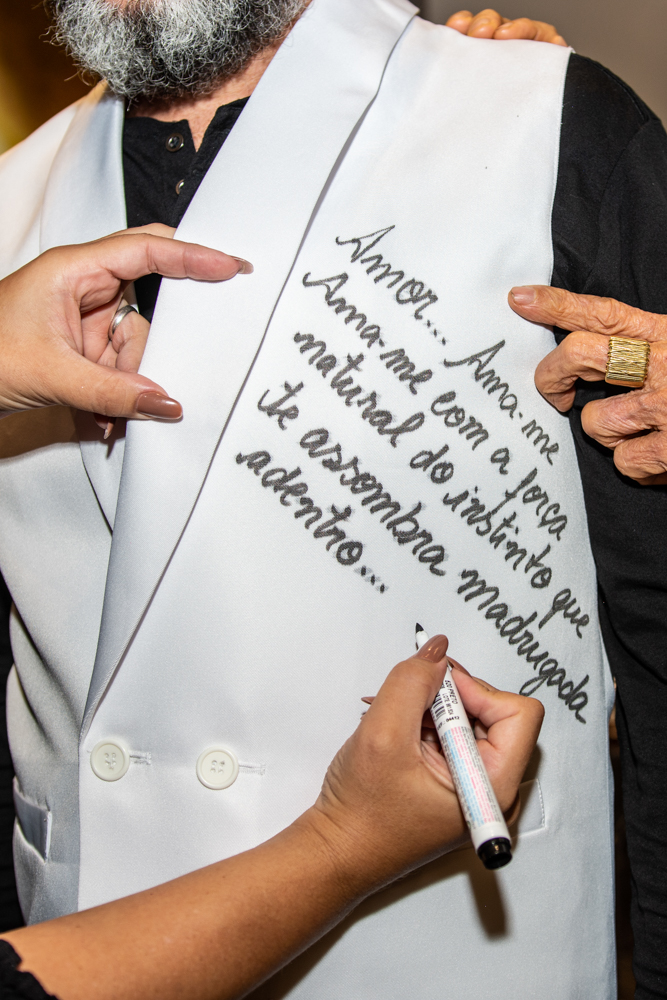 Amor... Ama-me
Ama-me com a força
natural do instinto que
te assombra madrugada
adentro...